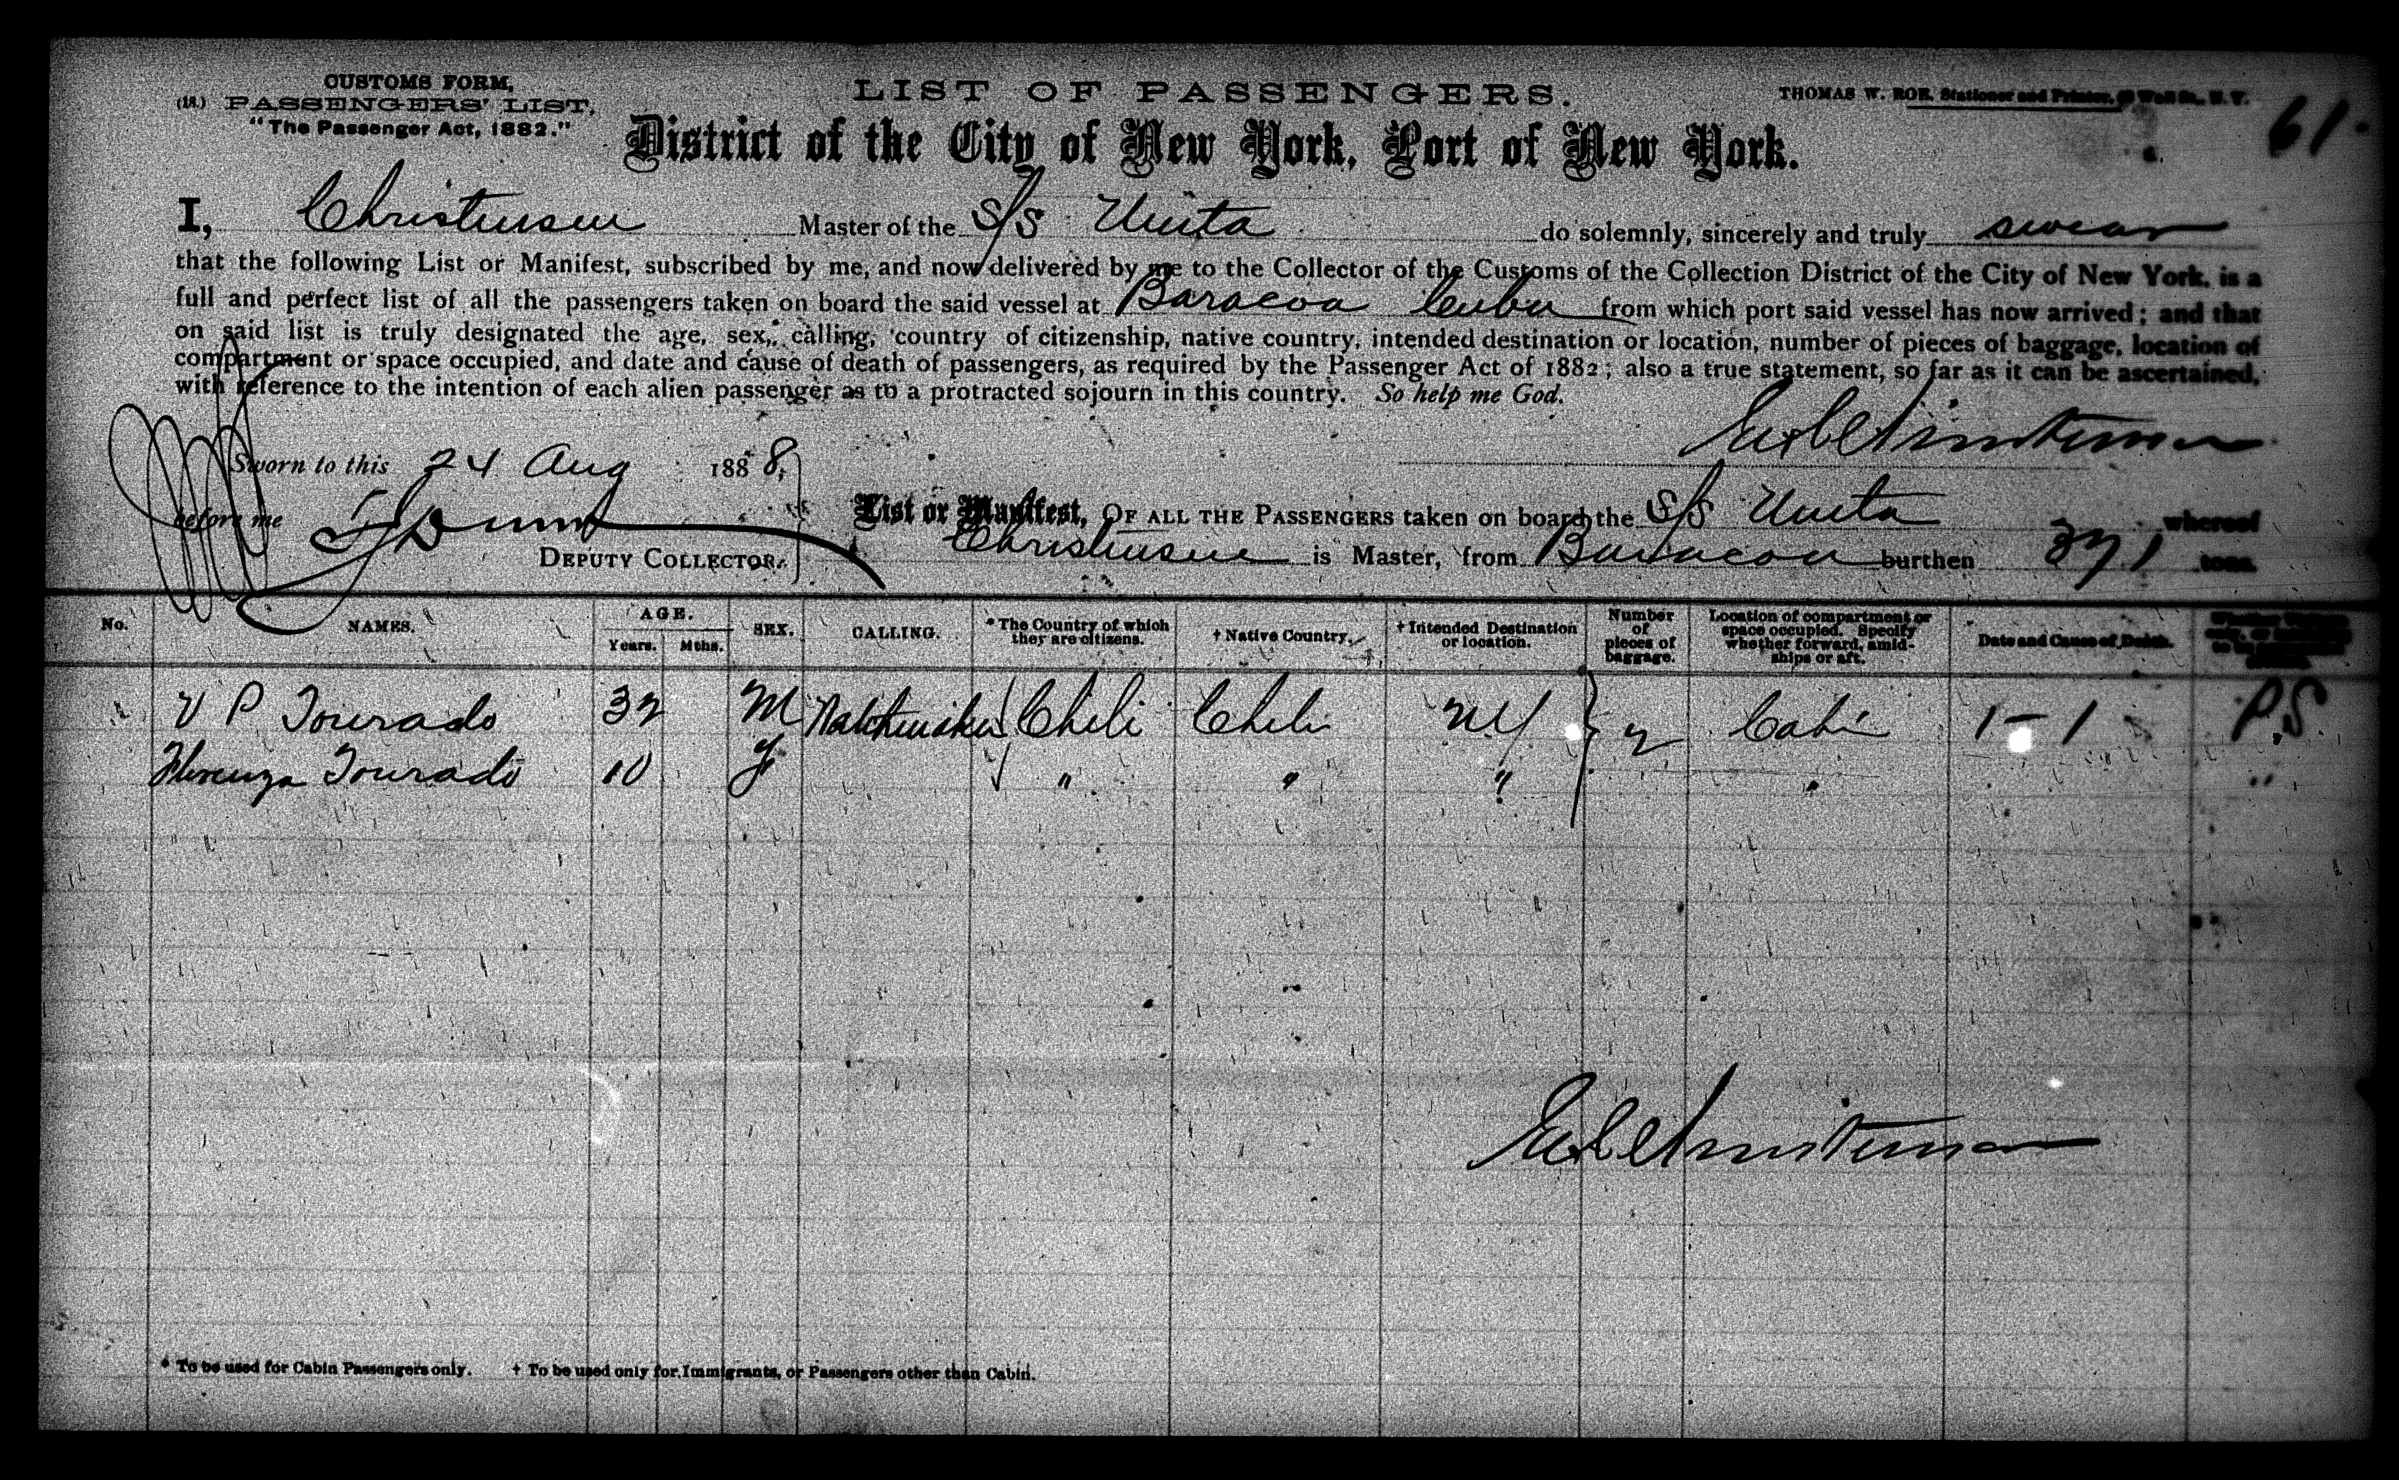 CUSTOMS FORM,
(18.) PASSENGERS' LIST,
"The Passenger Act, 1882."
LIST OF PASSENGERS.
THOMAS W. ROE, Stationer and Printer, Wall St., N. Y.
61
District of the City of New York, Port of New York.
I, Christensen Master of the S/S Unita do solemnly, sincerely and truly swear
that the following List or Manifest, subscribed by me, and now delivered by me to the Collector of the Customs of the Collection District of the City of New York, is a
full and perfect list of all the passengers taken on board the said vessel at Baracoa Cuba from which port said vessel has now arrived; and that
on said list is truly designated the age, sex, calling, country of citizenship, native country, intended destination or location, number of pieces of baggage, location of
compartment or space occupied, and date and cause of death of passengers, as required by the Passenger Act of 1882; also a true statement, so far as it can be ascertained,
with reference to the intention of each alien passenger as to a protracted sojourn in this country. So help me God.
Christensen
Sworn to this 24 Aug 1888,
before me
DEPUTY COLLECTOR.
List or Manifest, OF ALL THE PASSENGERS taken on board the S/S Unita whereof
Christensen is Master, from Baracoa burthen 371 tons.
No. NAMES. AGE. Years. Mths. SEX. CALLING. * The Country of which they are citizens. † Native Country. † Intended Destination or location. Number of pieces of baggage. Location of compartment or space occupied. Specify whether forward, amid-ships or aft. Date and Cause of Death.
V P Tourado 32 M Watchmaker Chili Chili NY 2 Cabin 1-1 P.S
Florenza Tourado 10 F " " " " "
Christensen
* To be used for Cabin Passengers only. † To be used only for Immigrants, or Passengers other than Cabin.